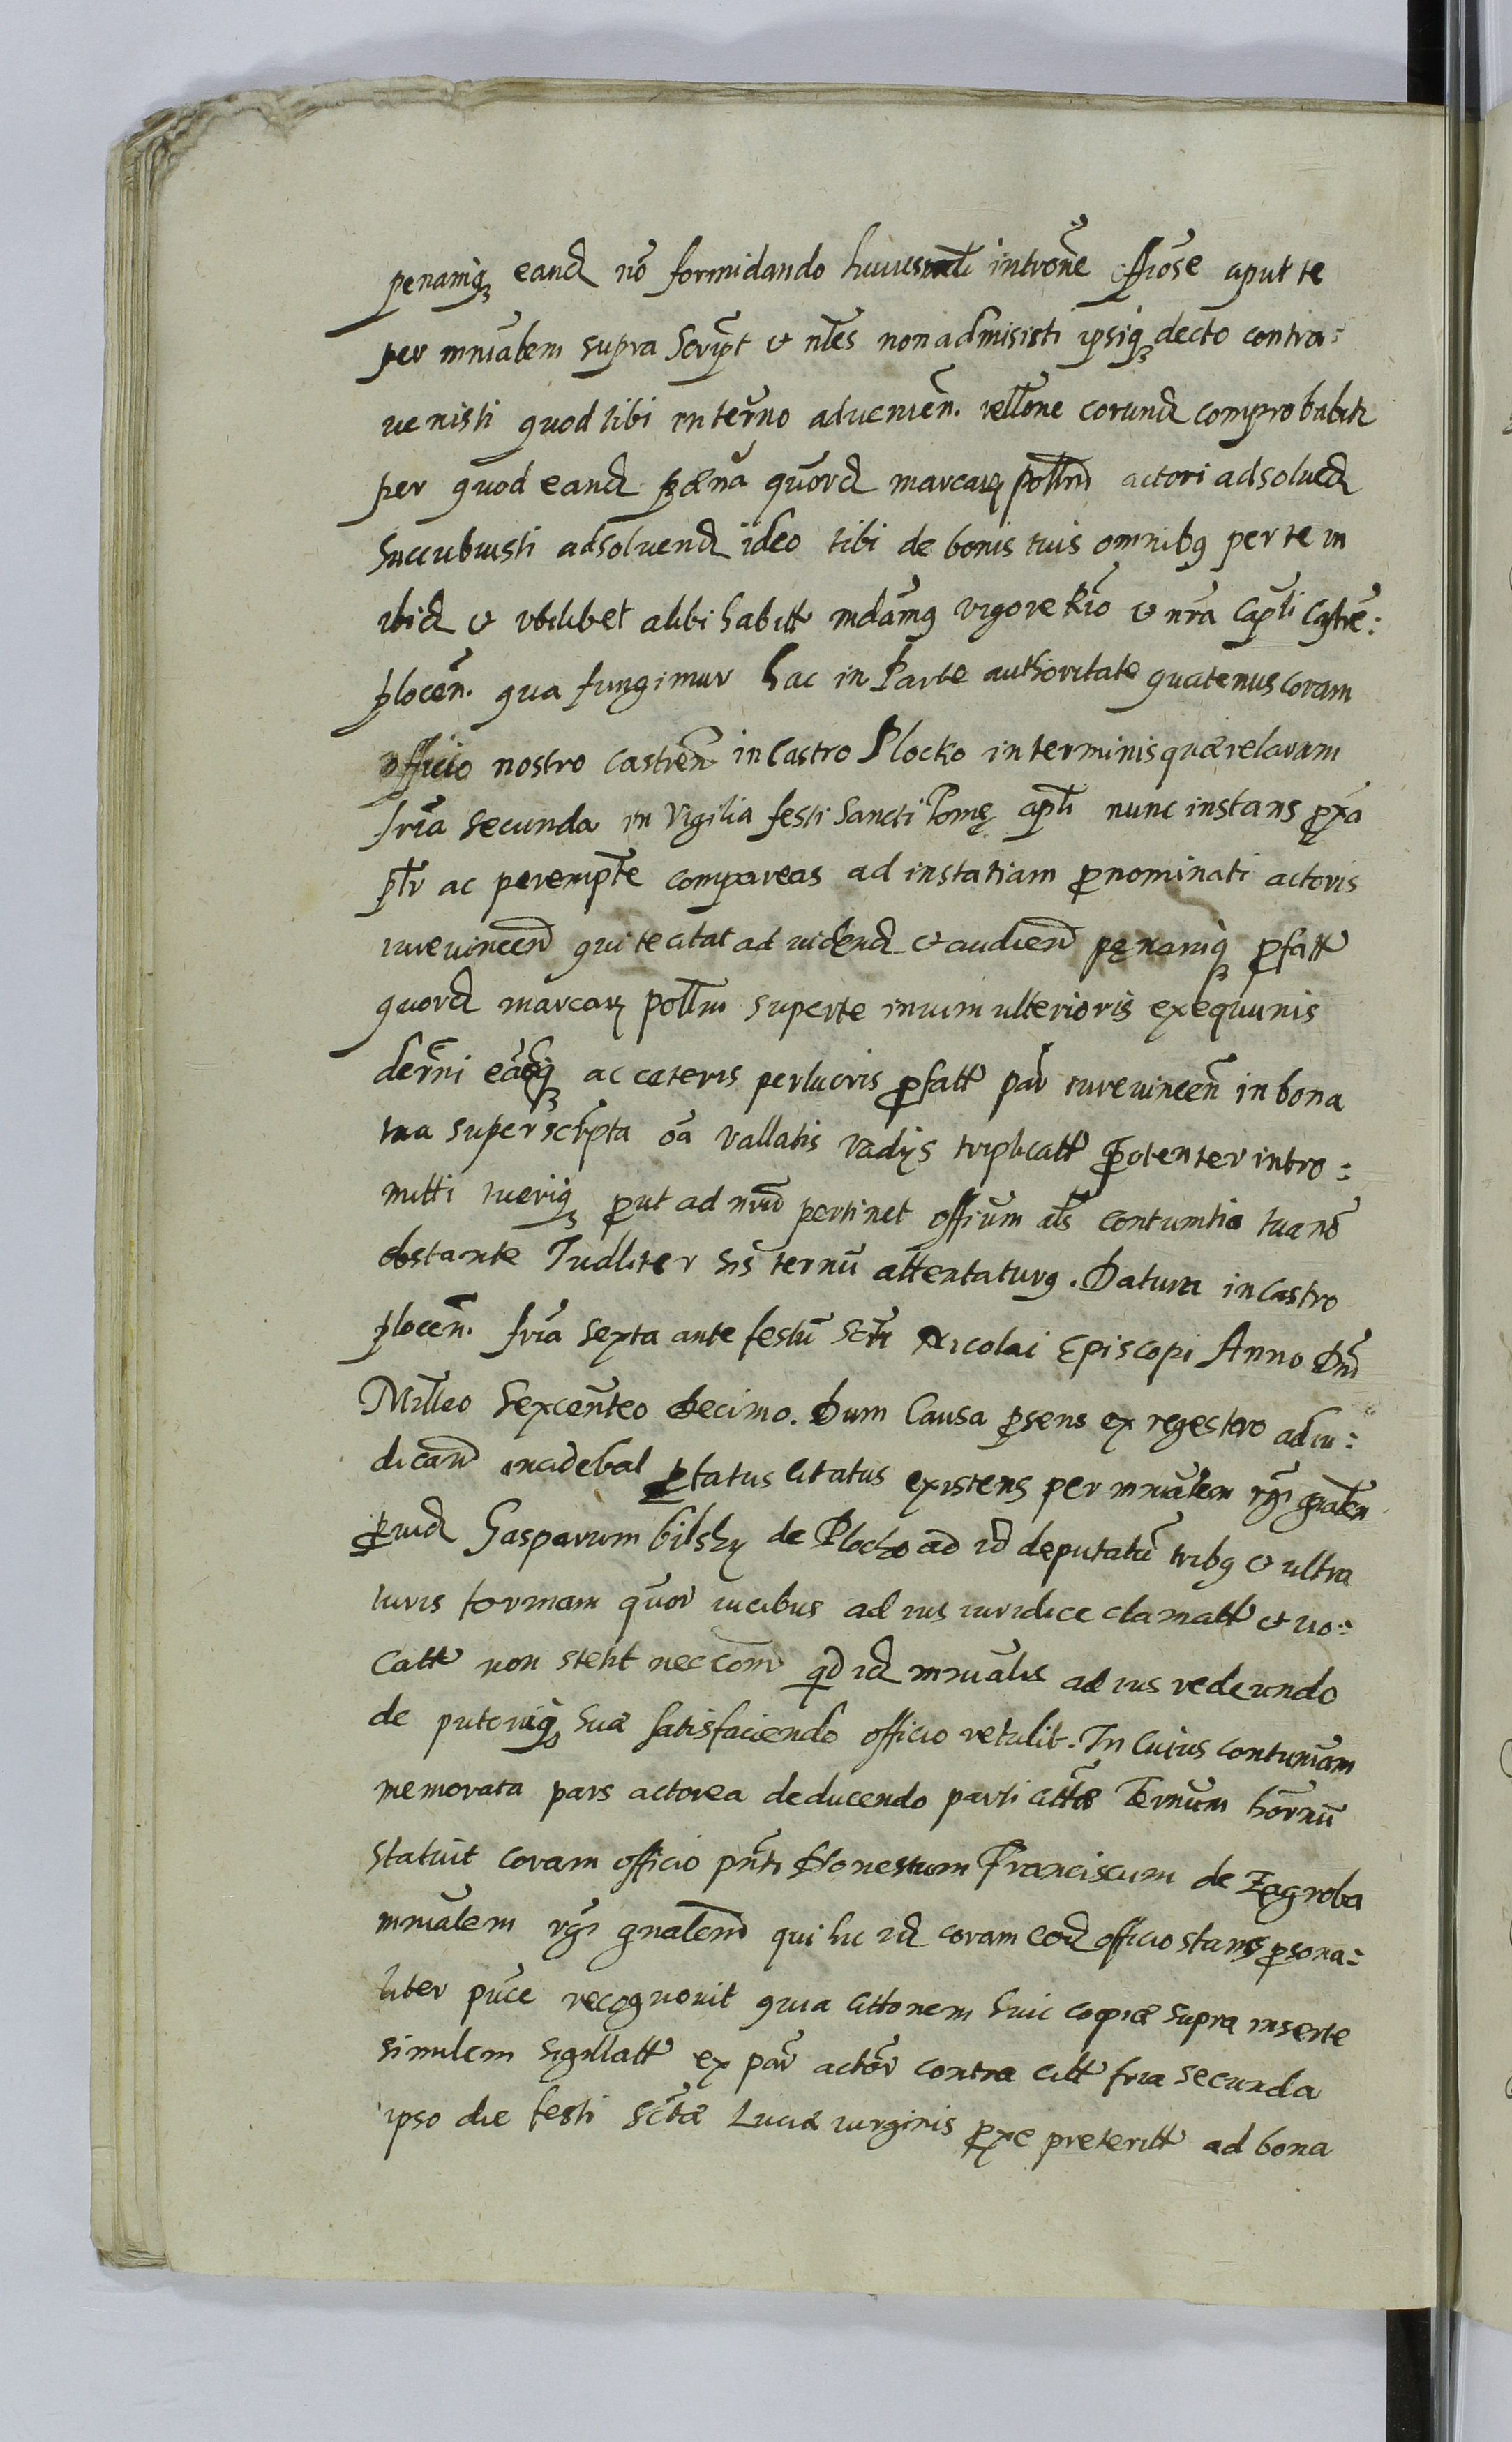 penamq₃ eand nō formidando huiusmdi intrōne offiōse aput te
per mniālem supra script et nles non admisisti ipsiq₃ decto contra:
uenisti quod tibi in termo aduenien. rellone eorund comprobabitr
per quod eand pænā quord marcaꝝ pollm actori adsolued
succubuisti adsoluend ideo tibi de bonis tuis omnibꝯ per te in
ibid et vbilibet alibi habitt mdāmꝯ vigore Rio et nrā Capli Castrē:
plocen̄. qua fungimur hac in Parte authoritate quatenus coram
officio nostro castren̄ in Castro Plocko in terminis quærelarum
fria secunda in Vigilia festi Sancti Tomę apli nunc instans p̱xa
ptr ac perempte compareas ad instatiam p̱nominati actoris
iureuincen qui te citat ad uidend et audien pęnamq₃ p̱fatt
quord marcaꝝ pollm super te in uim ulterioris exequunis
derni eāq₃ ac cæteris perlucris p̱fatt par iureuincen in bona
tua superscripta oā vallatis vadijs triplicatt potenter intro:
mitti tueriq₃ p̱ut ad nrū pertinet offium als contumtia tua nō
obstante Iudliter sis ternū attentaturꝯ. Datum in Castro
plocen̄. fria sexta ante festū Scti Nicolai Episcopi Anno Dni
Milleo Sexcenteo decimo. Dum Causa p̱sens ex regestro adiu:
dicand incidebat p̱tatus citatus existens per mnialem rgi gnalem
p̱uid Gasparum bilsky de Plocko ad id deputatū tribꝯ et ultra
iuris formam quor uicibus ad ius iuridice clamatt et uo:
catt non stetit nec com qd id mnialis ad ius redeundo
de putoniq₃ suæ satisfaciendo officio retulit. In cuius contumam
memorata pars actorea deducendo parti cittæ Ternum hornū
statuit coram officio pnti Honestum Franciscum de Zagroba
mnialem rgi gnalem qui hic id coram eod officio stans p̱sona:
liter puce recognouit quia cittonem huic copiæ supra inserte
similem sigillatt ex par actor contra citt fria secunda
ipso die festi Sctæ Luciæ uirginis p̱xe preteritt ad bona